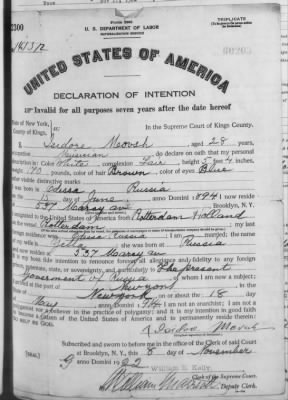 Form 2203
U. S. DEPARTMENT OF LABOR
NATURALIZATION SERVICE
TRIPLICATE
UNITED STATES OF AMERICA
DECLARATION OF INTENTION
Invalid for all purposes seven years after the date hereof
State of New York,
County of Kings, ss:
In the Supreme Court of Kings County.
I, Isidore Movsh, aged 28 years,
occupation Musician, do declare on oath that my personal
description is: Color White, complexion Fair, height 5 feet 4 inches,
weight pounds, color of hair Brown, color of eyes Blue
other visible distinctive marks
I was born in Odessa Russia
on the 15 day of June, anno Domini 1894; I now reside
at 537 Marcy av, Brooklyn, N.Y.
I emigrated to the United States of America from Rotterdam Holland
on the vessel Rotterdam; my last
foreign residence was Odessa Russia; I am married; the name
of my wife is Bella; she was born at Russia
and now resides at 537 Marcy av
It is my bona fide intention to renounce forever all allegiance and fidelity to any foreign
prince, potentate, state, or sovereignty, and particularly to The present
Government of Russia, of whom I am now a subject;
I arrived at the port of New York, in the
State of New York, on or about the 18 day
of anno Domini; I am not an anarchist; I am not a
polygamist nor a believer in the practice of polygamy; and it is my intention in good faith
to become a citizen of the United States of America and to permanently reside therein:
SO HELP ME GOD.
Isidore Movsh
Subscribed and sworn to before me in the office of the Clerk of said Court
at Brooklyn, N.Y., this 8 day of November
anno Domini 1922
[SEAL]
William E. Kelly
Clerk of the Supreme Court.
Deputy Clerk.